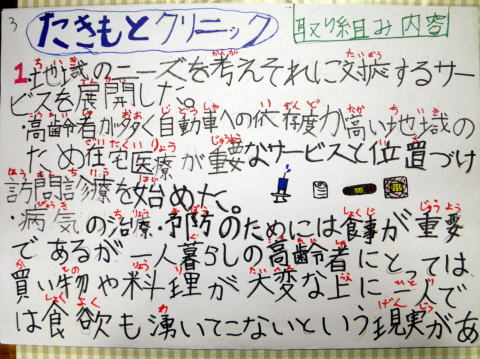 3
たきもとクリニック
取り組み内容
1.地域のニーズを考えそれに対応するサー
ビスを展開した。
・高齢者が多く自動車への依存度が高い地域の
ため在宅医療が重要なサービスと位置づけ
訪問診療を始めた。
・病気の治療・予防のためには食事が重要
であるが一人暮らしの高齢者にとっては
買い物や料理が大変な上に一人で
は食欲も湧いてこないという現実があ